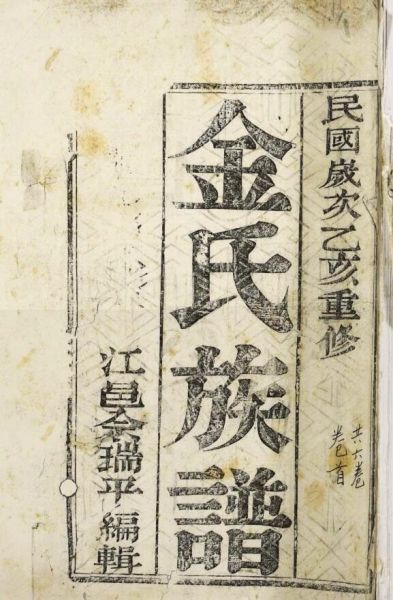 民國歲次乙亥重修
共六卷
卷首
金氏族譜
江邑余瑞平編輯